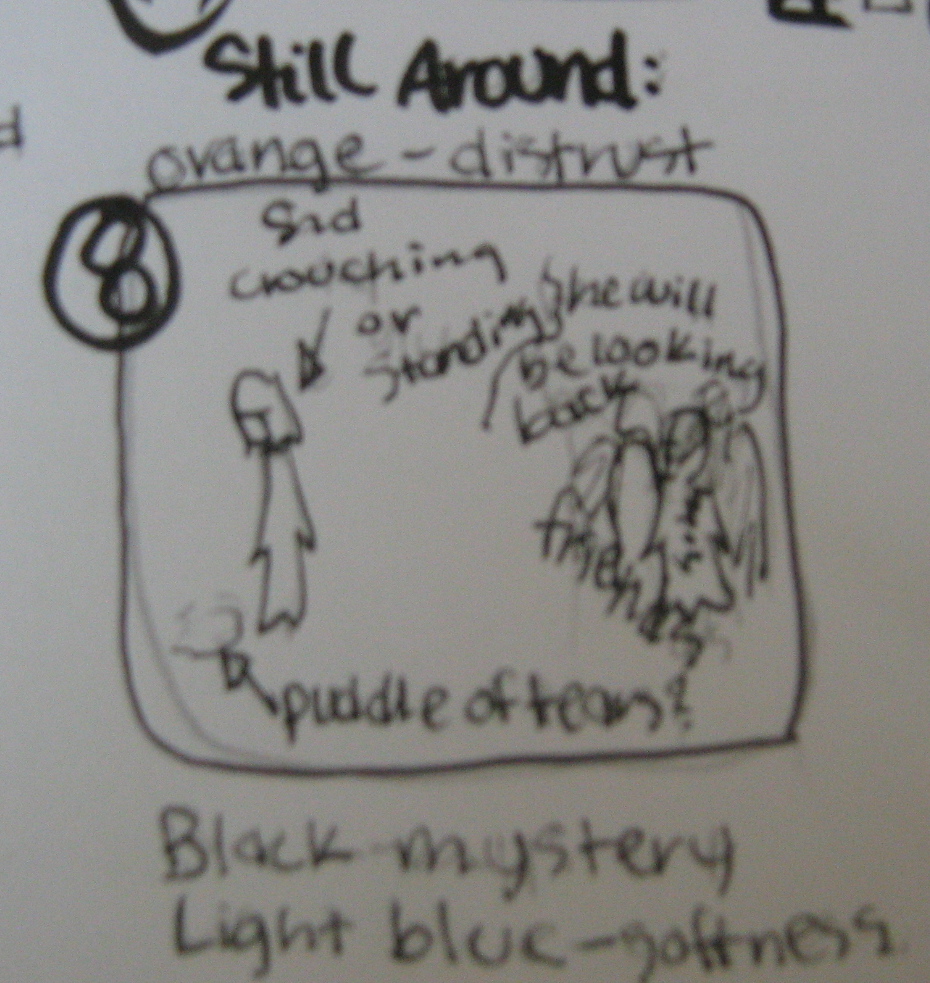 Still Around:
orange - distrust
8
Sad
crouching
or
standing
he will
be looking
back
friends
him
puddle of tears?
Black-mystery
Light blue-softness